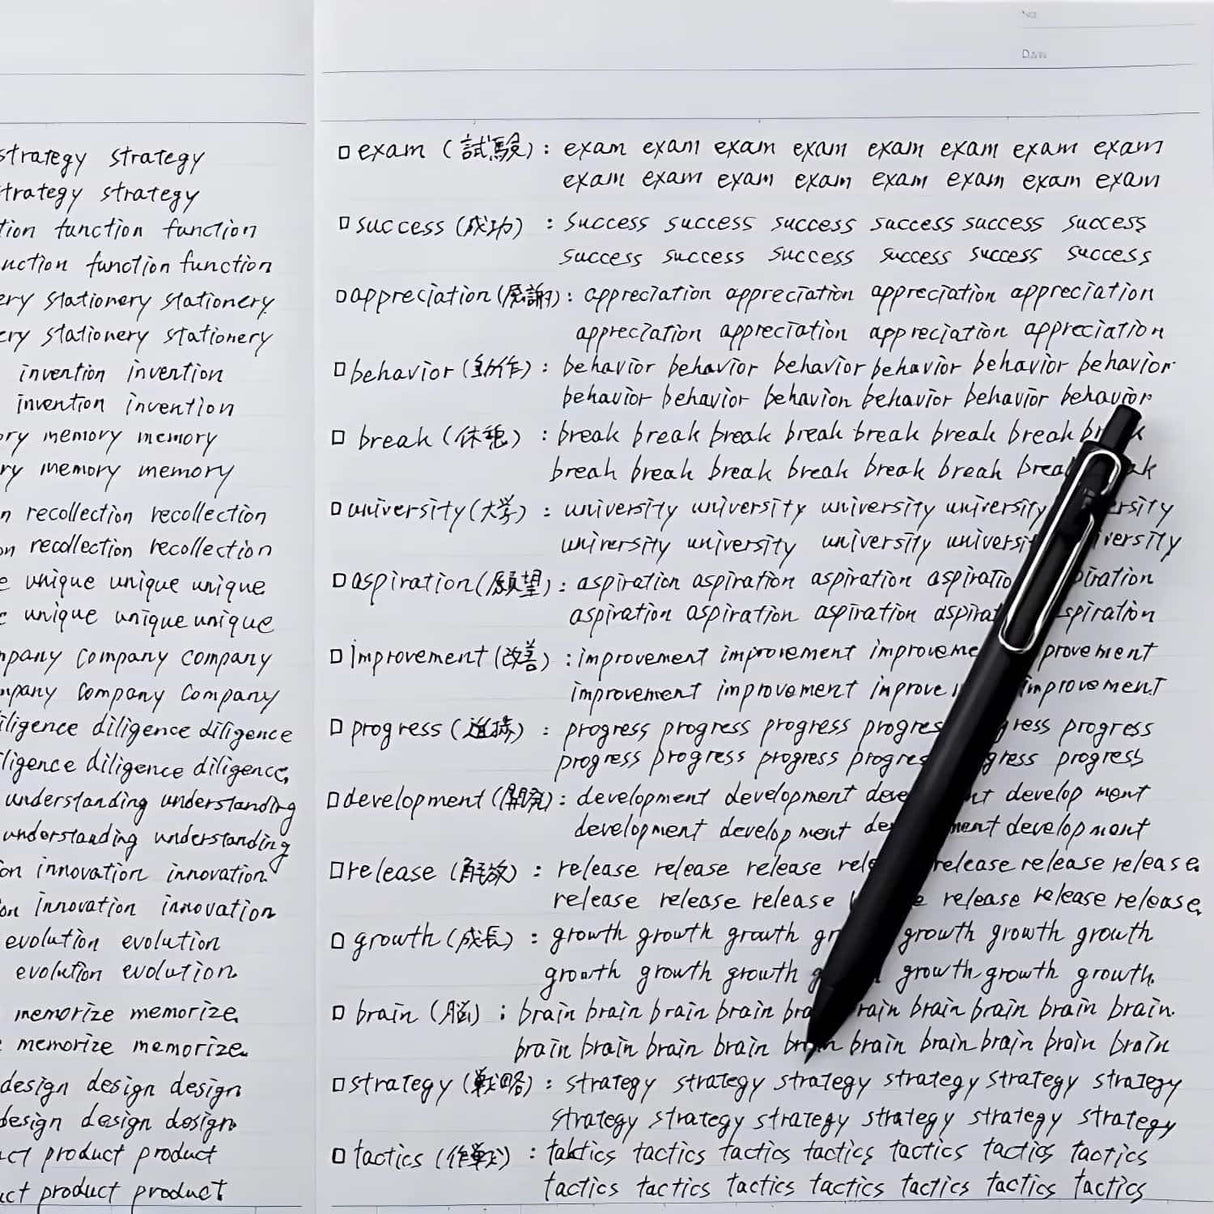 strategy strategy
strategy
function function
function function
stationery stationery
stationery stationery
invention invention
invention invention
memory memory
memory memory
recollection recollection
recollection recollection
unique unique unique
unique unique unique
company company
company company
diligence diligence
diligence diligence
understanding understanding
understanding understanding
innovation innovation
innovation innovation
evolution evolution
evolution evolution
memorize memorize
memorize memorize
design design design
design design design
product product
product product
No.
Date
□ exam (試験) : exam exam exam exam exam exam exam exam
exam exam exam exam exam exam exam exam
□ success (成功) : success success success success success success
success success success success success success
□ appreciation (感謝) : appreciation appreciation appreciation appreciation
appreciation appreciation appreciation appreciation
□ behavior (動作) : behavior behavior behavior behavior behavior behavior
behavior behavior behavion behavior behavior behavior
□ break (休憩) : break break break break break break break
break break break break break break
□ university (大学) : university university university university
university university university
□ aspiration (願望) : aspiration aspiration aspiration
aspiration aspiration aspiration
□ improvement (改善) : improvement improvement
improvement improvement improvement
□ progress (進捗) : progress progress progress progress progress
progress progress progress progress progress
□ development (開発) : development development development
development development development
□ release (解放) : release release release release release release
release release release release release release
□ growth (成長) : growth growth growth growth growth growth
growth growth growth growth growth growth
□ brain (脳) : brain brain brain brain brain brain brain brain
brain brain brain brain brain brain brain brain brain
□ strategy (戦略) : strategy strategy strategy strategy strategy strategy
strategy strategy strategy strategy strategy strategy
□ tactics (作戦) : tactics tactics tactics tactics tactics tactics
tactics tactics tactics tactics tactics tactics tactics